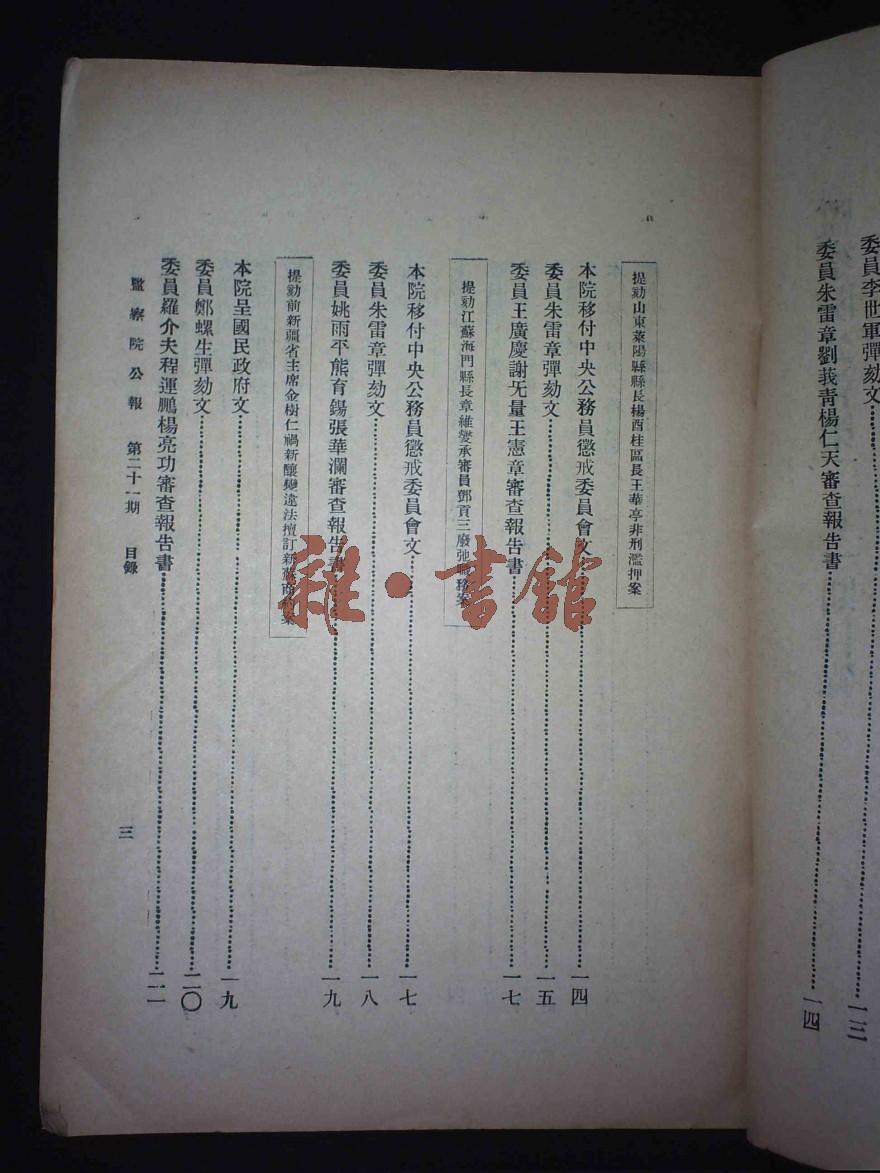 委員李世軍彈劾文……一三
委員朱雷章劉莪青楊仁天審查報告書……一四
提劾山東萊陽縣縣長楊酉桂區長王華亭非刑濫押案
本院移付中央公務員懲戒委員會文……一四
委員朱雷章彈劾文……一五
委員王廣慶謝无量王憲章審查報告書……一七
提劾江蘇海門縣長章維燮承審員鄧貢三廢弛職務案
本院移付中央公務員懲戒委員會文……一七
委員朱雷章彈劾文……一八
委員姚雨平熊育鍚張華瀾審查報告書……一九
提劾前新疆省主席金樹仁禍新釀變違法擅訂新蘇商約案
本院呈國民政府文……一九
委員鄭螺生彈劾文……二〇
委員羅介夫程運鵬楊亮功審查報告書……二一
監察院公報 第二十一期 目錄
三
雜·書館